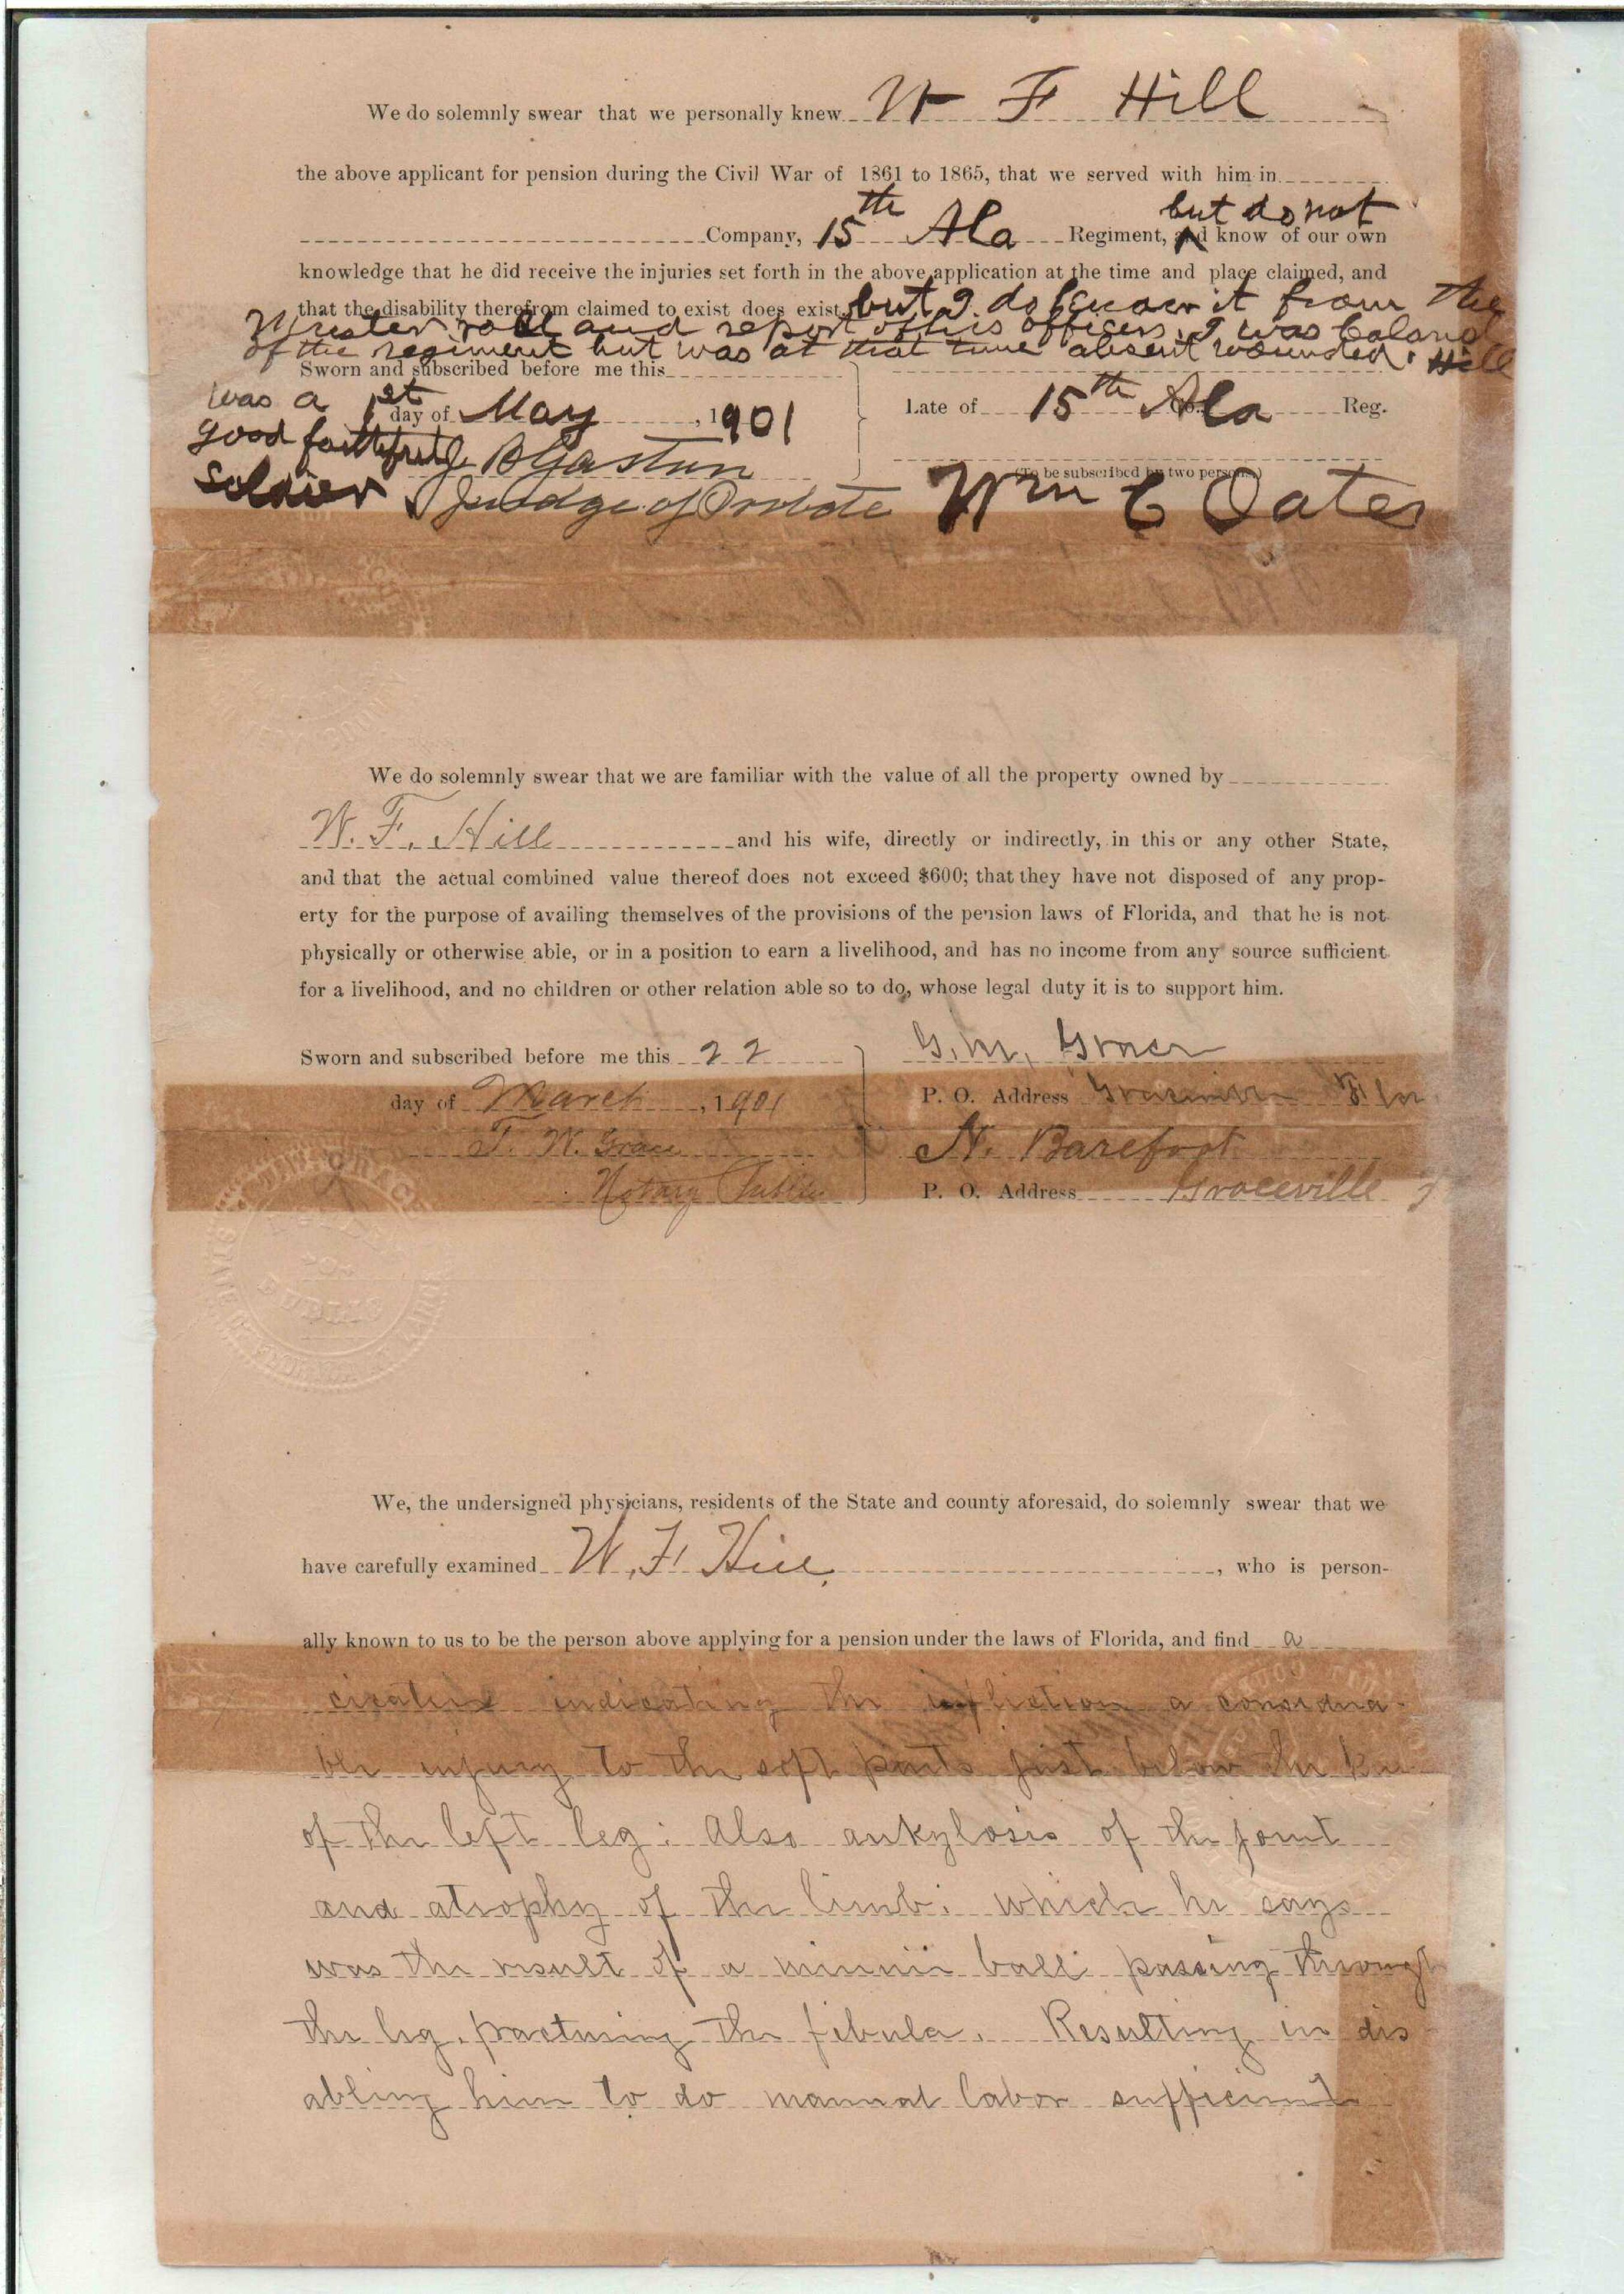 We do solemnly swear that we personally knew W F Hill
the above applicant for pension during the Civil War of 1861 to 1865, that we served with him in
but do not
Company, 15th Ala Regiment, and know of our own
knowledge that he did receive the injuries set forth in the above application at the time and place claimed, and
that the disability therefrom claimed to exist does exist, but I do know it from the
Muster roll and report of his officers. I was Colonel
of the regiment but was at that time absent wounded. Hill
Sworn and subscribed before me this
was a 1st day of May, 1901
Late of 15th Ala Co. Reg.
good faithful J B Gaston
(To be subscribed by two persons)
Soldier Judge of Probate Wm C Oates
We do solemnly swear that we are familiar with the value of all the property owned by
W. F. Hill and his wife, directly or indirectly, in this or any other State,
and that the actual combined value thereof does not exceed $600; that they have not disposed of any prop-
erty for the purpose of availing themselves of the provisions of the pension laws of Florida, and that he is not
physically or otherwise able, or in a position to earn a livelihood, and has no income from any source sufficient
for a livelihood, and no children or other relation able so to do, whose legal duty it is to support him.
Sworn and subscribed before me this 22 G. M. Grace
day of March, 1901 P. O. Address Graceville Fla
T. W. Grace N. Barefoot
Notary Public P. O. Address Graceville
We, the undersigned physicians, residents of the State and county aforesaid, do solemnly swear that we
have carefully examined W. F. Hill, who is person-
ally known to us to be the person above applying for a pension under the laws of Florida, and find a
cicatrix indicating the infliction a considera-
ble injury to the soft parts just below the knee
of the left leg: Also ankylosis of the joint
and atrophy of the limb: which he says
was the result of a minnii ball passing through
the leg, fracturing the fibula. Resulting in dis
abling him to do manual labor sufficient